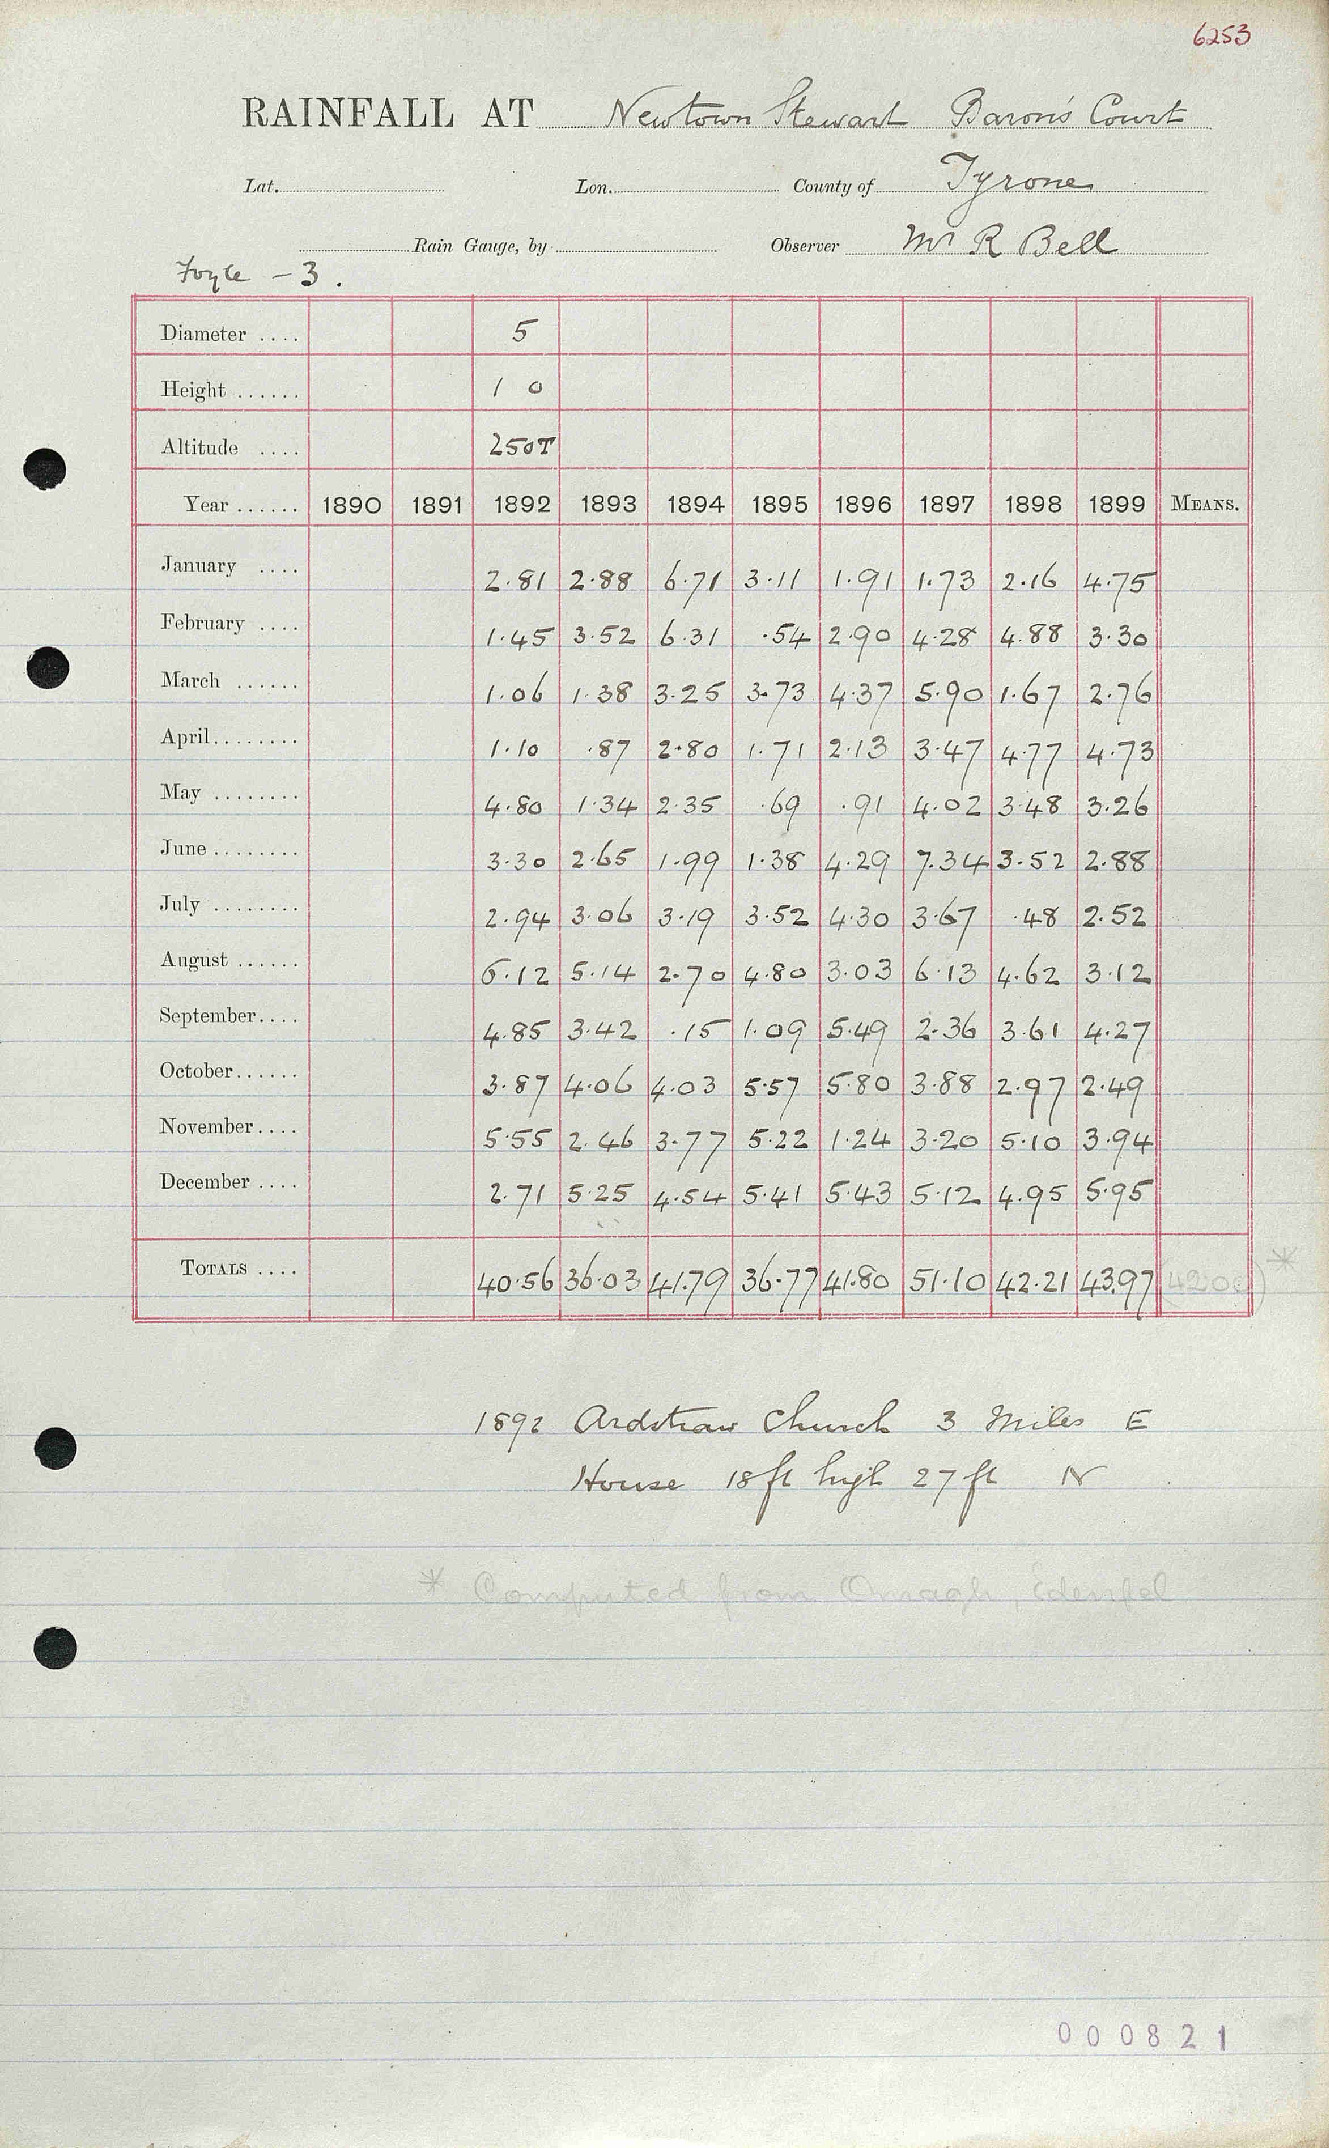 6253
RAINFALL AT Newtown Stewart Baron's Court
Lat. Lon. County of Tyrone
Rain Gauge, by Observer Mr R Bell
Foyle - 3.
Diameter .... 5
Height ...... 1 0
Altitude .... 250T
Year ...... 1890 1891 1892 1893 1894 1895 1896 1897 1898 1899 MEANS.
January .... 2.81 2.88 6.71 3.11 1.91 1.73 2.16 4.75
February .... 1.45 3.52 6.31 .54 2.90 4.28 4.88 3.30
March ...... 1.06 1.38 3.25 3.73 4.37 5.90 1.67 2.76
April........ 1.10 .87 2.80 1.71 2.13 3.47 4.77 4.73
May ........ 4.80 1.34 2.35 .69 .91 4.02 3.48 3.26
June ........ 3.30 2.65 1.99 1.38 4.29 7.34 3.52 2.88
July ........ 2.94 3.06 3.19 3.52 4.30 3.67 .48 2.52
August ...... 6.12 5.14 2.70 4.80 3.03 6.13 4.62 3.12
September.... 4.85 3.42 .15 1.09 5.49 2.36 3.61 4.27
October...... 3.87 4.06 4.03 5.57 5.80 3.88 2.97 2.49
November.... 5.55 2.46 3.77 5.22 1.24 3.20 5.10 3.94
December .... 2.71 5.25 4.54 5.41 5.43 5.12 4.95 5.95
TOTALS .... 40.56 36.03 41.79 36.77 41.80 51.10 42.21 43.97 (4200) *
1892 Ardstraw Church 3 Miles E
House 18 ft high 27 ft N
* Computed from Omagh, Edenfel
000821